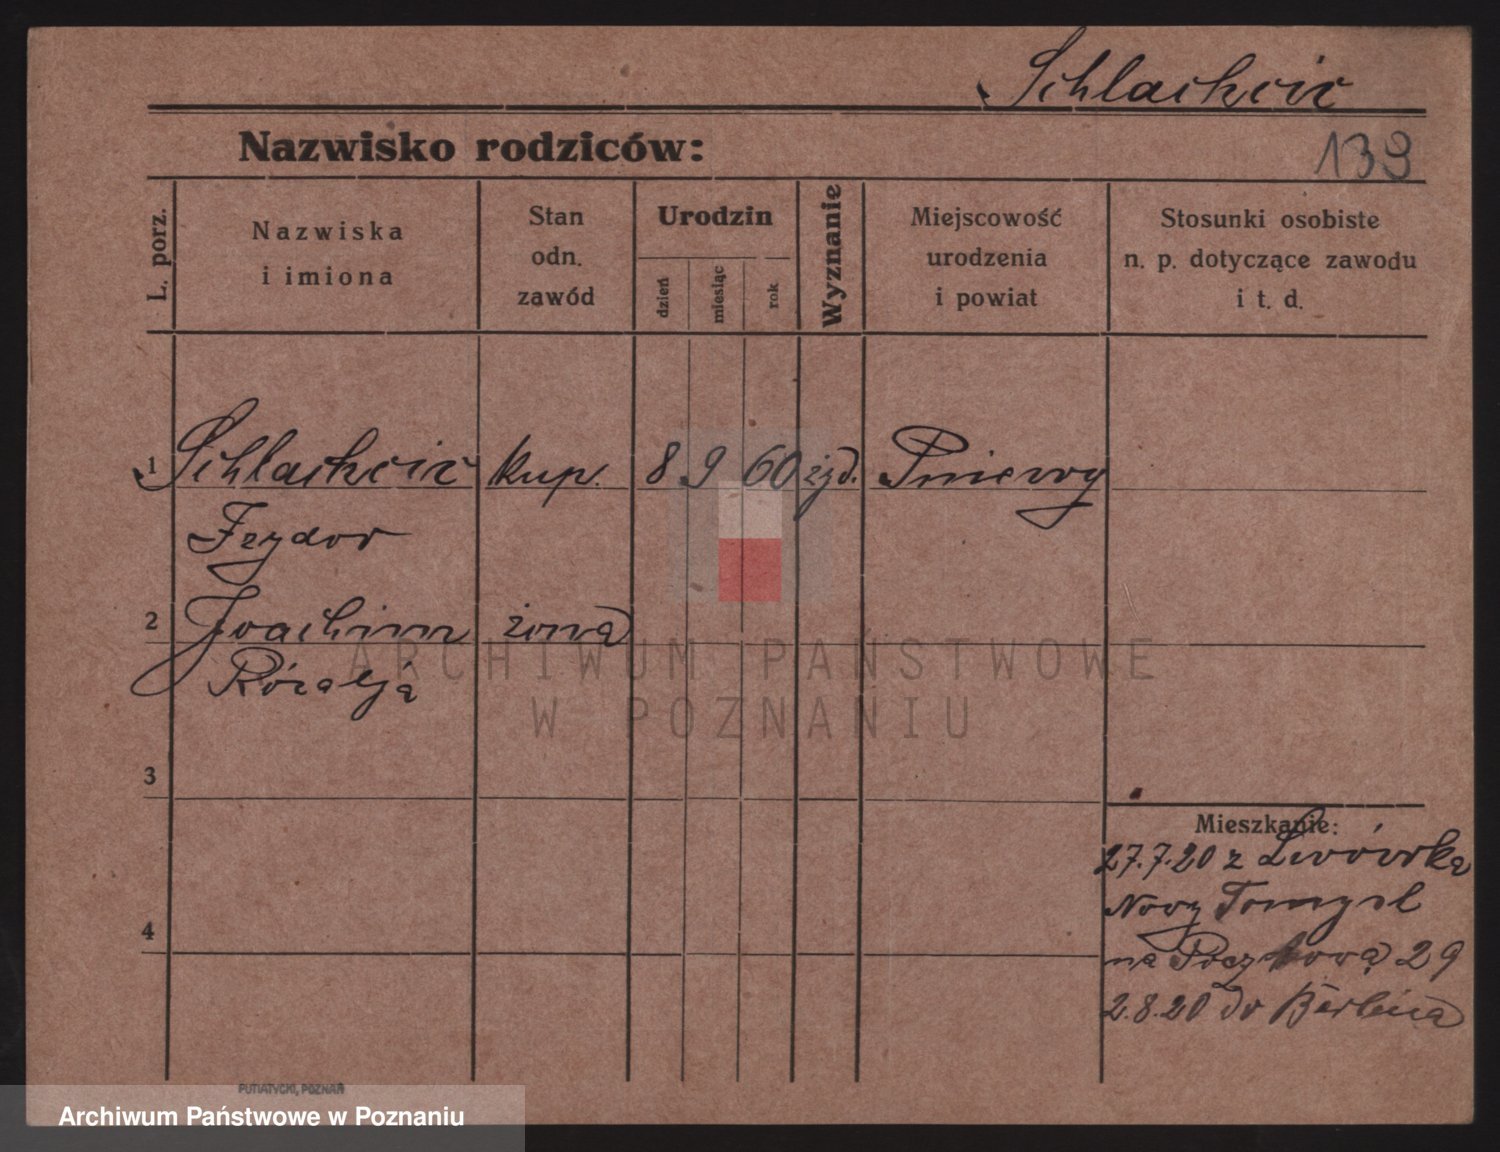 Schlachcic
Nazwisko rodziców:
139
L. porz.
Nazwiska
i imiona
Stan
odn.
zawód
Urodzin
dzień
miesiąc
rok
Wyznanie
Miejscowość
urodzenia
i powiat
Stosunki osobiste
n. p. dotyczące zawodu
i t. d.
1 Schlachcic kup. 8 9 60 żyd. Pniewy
Izydor
2 Joachim żona
Rózalja
3
4
Mieszkanie:
27.7.20 z Lwówka
Nowy Tomysl
na Pocztową 29
2.8.20 do Berlina
ARCHIWUM PAŃSTWOWE
W POZNANIU
PUTIATYCKI, POZNAŃ
Archiwum Państwowe w Poznaniu